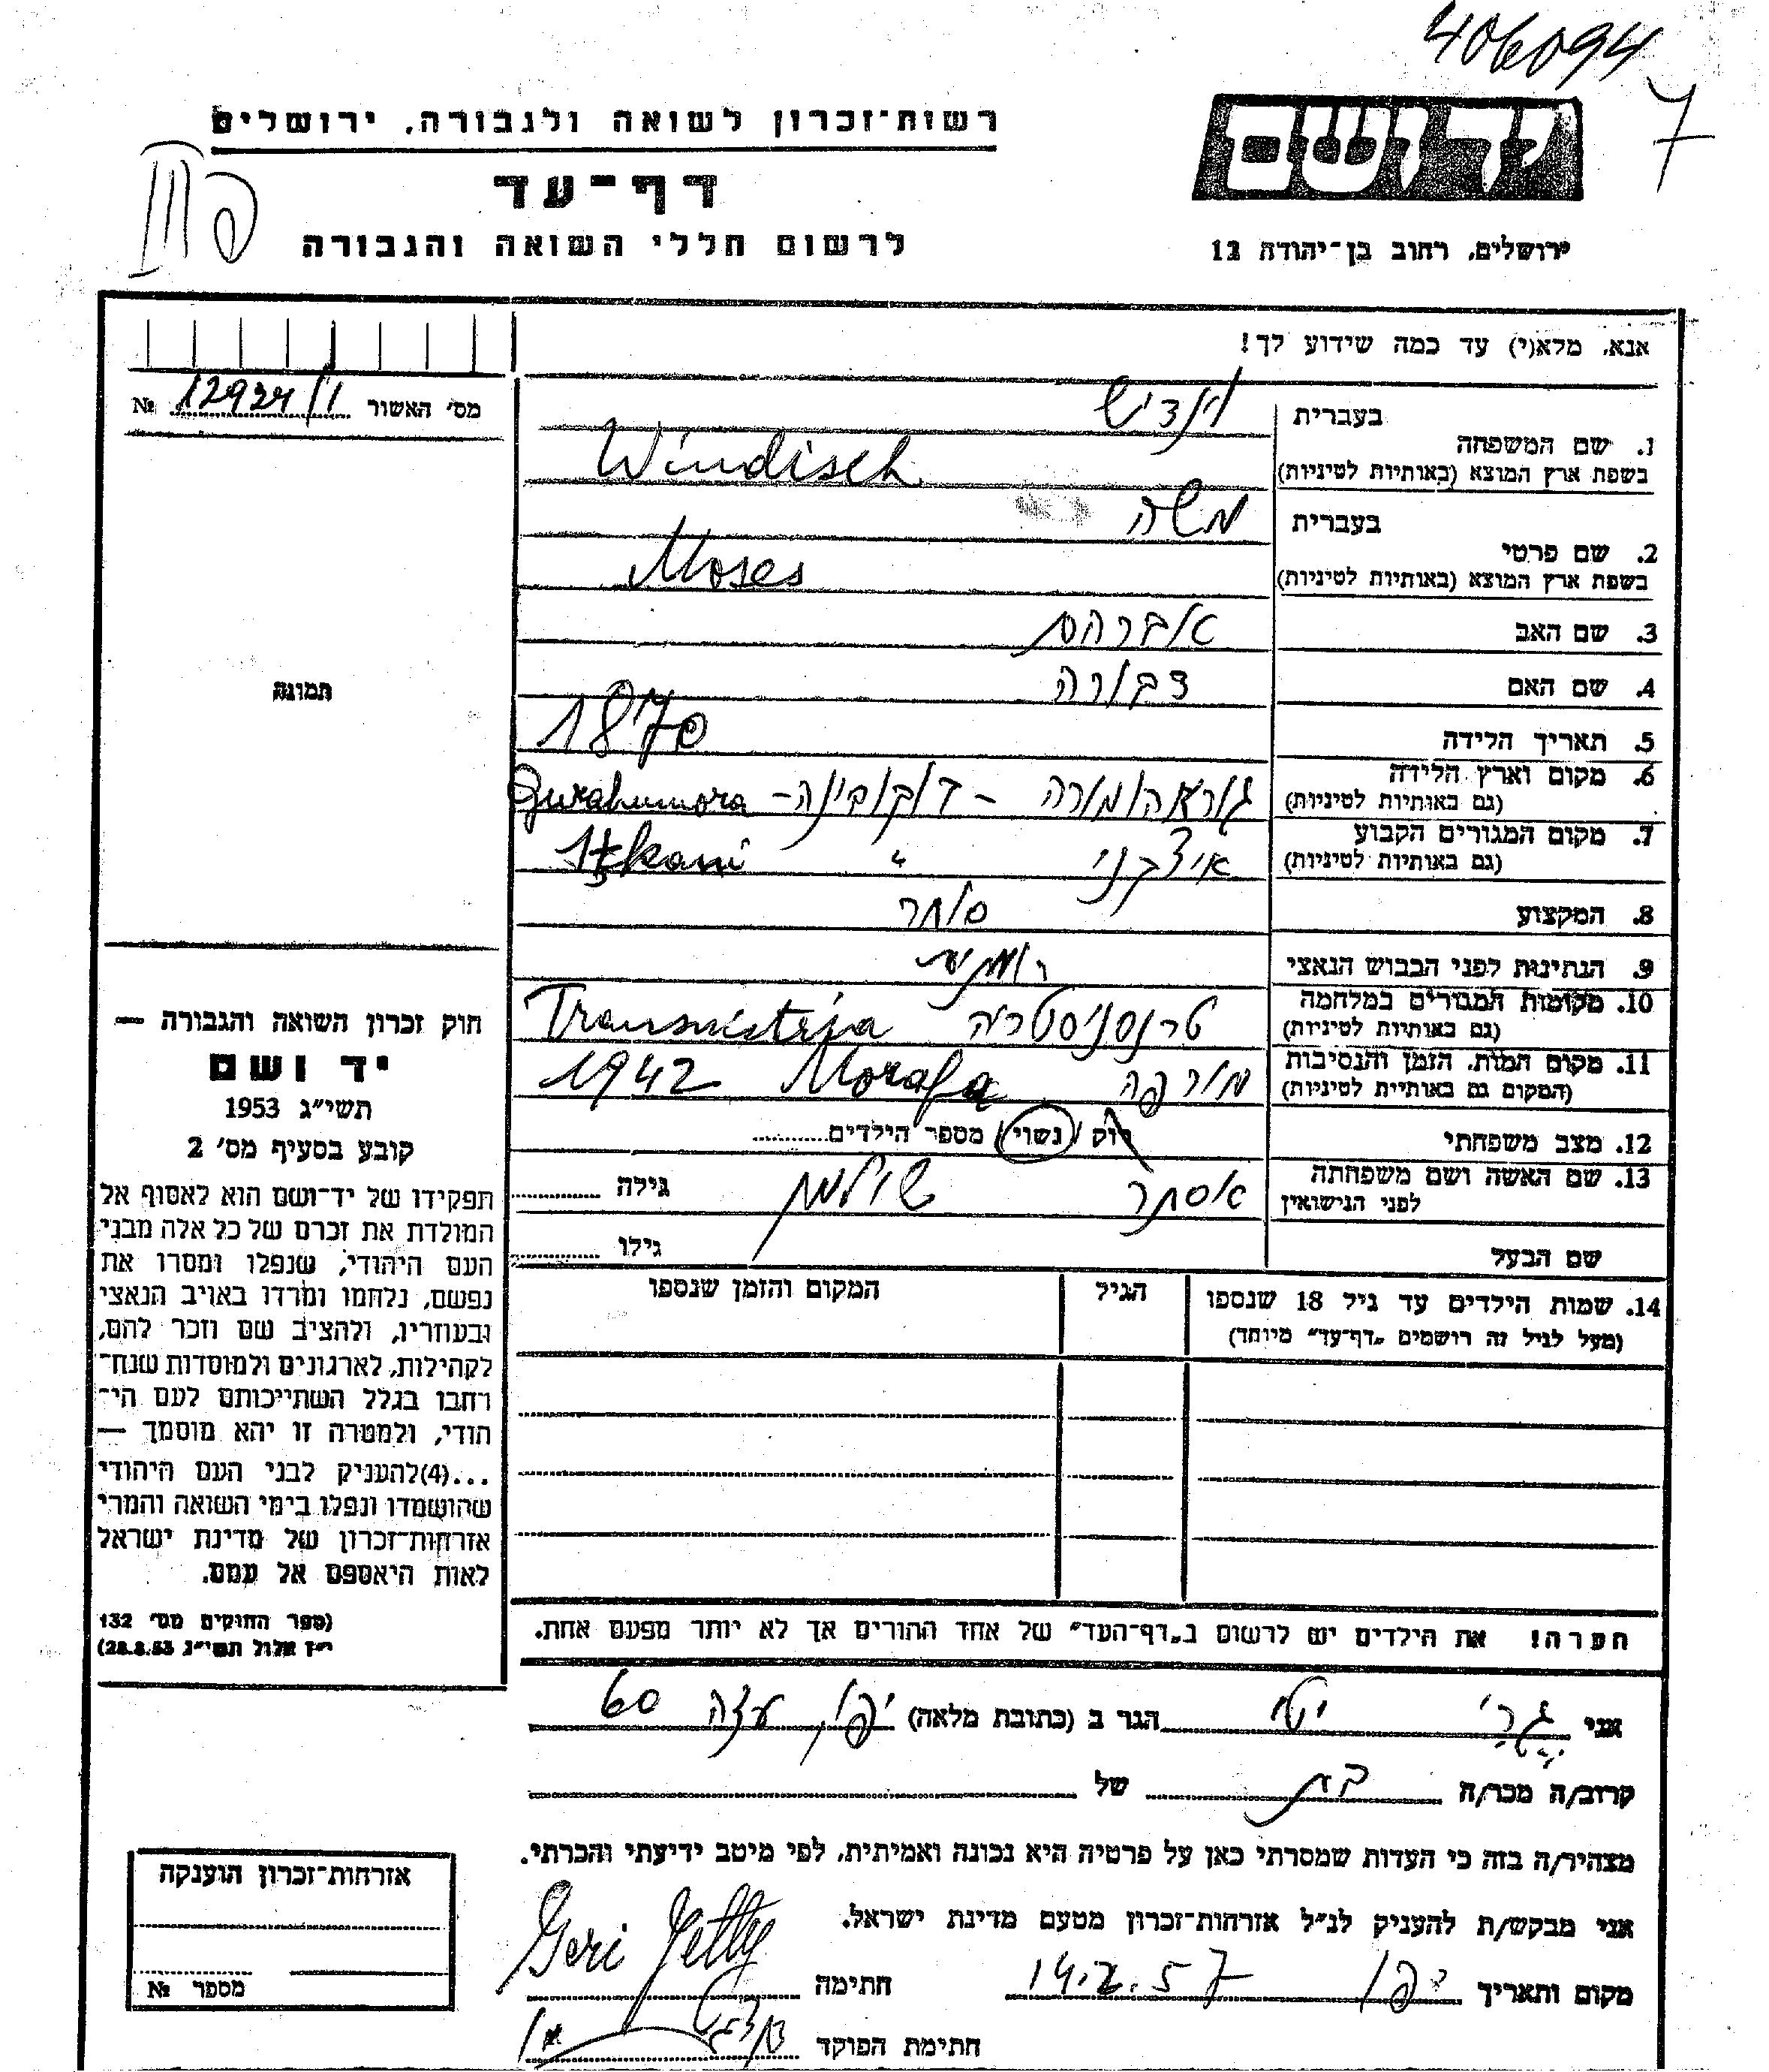 406094
7
רשות־זכרון לשואה ולגבורה, ירושלים
דף־עד
לרשום חללי השואה והגבורה
ירושלים, רחוב בן־יהודה 12
אנא, מלא(י) עד כמה שידוע לך!
מס׳ האשור 12924/1 №
תמונה
1. שם המשפחה
בעברית וינדיש
בשפת ארץ המוצא (באותיות לטיניות) Windisch
2. שם פרטי
בעברית משה
בשפת ארץ המוצא (באותיות לטיניות) Moses
3. שם האב אברהם
4. שם האם דבורה
5. תאריך הלידה 1870
6. מקום וארץ הלידה
(גם באותיות לטיניות) גוראהומורה – בוקובינה – Gurahumora
7. מקום המגורים הקבוע
(גם באותיות לטיניות) איצקני " Itzkani
8. המקצוע סוחר
9. הנתינות לפני הכבוש הנאצי
10. מקומות המגורים במלחמה
(גם באותיות לטיניות) טרנסניסטריה Transnistria
11. מקום המות, הזמן והנסיבות
(המקום גם באותיות לטיניות) מורפה Morafa 1942
12. מצב משפחתי רוק / נשוי / מספר הילדים
13. שם האשה ושם משפחתה
לפני הנישואין אסתר שולמן גילה
שם הבעל גילו
14. שמות הילדים עד גיל 18 שנספו
(מעל לגיל זה רושמים „דף־עד" מיוחד)
הגיל
המקום והזמן שנספו
חוק זכרון השואה והגבורה —
יד ושם
תשי״ג 1953
קובע בסעיף מס׳ 2
תפקידו של יד־ושם הוא לאסוף אל
המולדת את זכרם של כל אלה מבני
העם היהודי, שנפלו ומסרו את
נפשם, נלחמו ומרדו באויב הנאצי
ובעוזריו, ולהציב שם וזכר להם,
לקהילות, לארגונים ולמוסדות שנח־
רחבו בגלל השתייכותם לעם הי־
הודי, ולמטרה זו יהא מוסמך —
...(4)להעניק לבני העם היהודי
שהושמדו ונפלו בימי השואה והמרי
אזרחות־זכרון של מדינת ישראל
לאות היאספם אל עמם.
(ספר החוקים מס׳ 132
י״ז אלול תשי״ג 28.8.53)
הערה! את הילדים יש לרשום ב„דף־העד" של אחד ההורים אך לא יותר מפעם אחת.
אני גרי יטי הגר ב (כתובת מלאה) יפו, עזה 60
קרוב/ה מכר/ה בת של
מצהיר/ה בזה כי העדות שמסרתי כאן על פרטיה היא נכונה ואמיתית, לפי מיטב ידיעתי והכרתי.
אני מבקש/ת להעניק לנ״ל אזרחות־זכרון מטעם מדינת ישראל.
מקום ותאריך יפו 14.2.57 חתימה Geri Jetty
חתימת הפוקד
אזרחות־זכרון הוענקה
מספר №